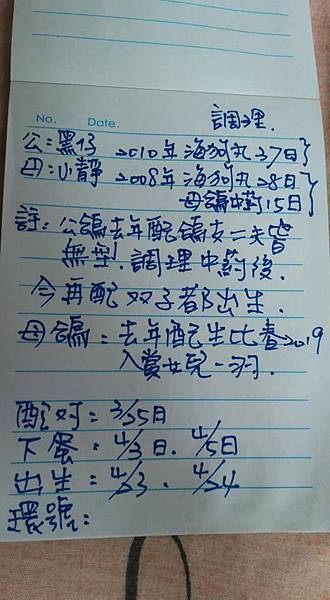 No. Date. 調理.
公:黑仔 2010年海狗丸27日
母:小靜 2008年海狗丸28日
母鴿中葯15日
註:公鴿去年配鴿友二夫皆
無型.調理中葯後.
今再配双子都出生.
母鴿:去年配生比春2019
入賞女兒一羽.
配対:3/25日
下蛋:4/3日.4/5日
出生:4/23.4/24
環號: